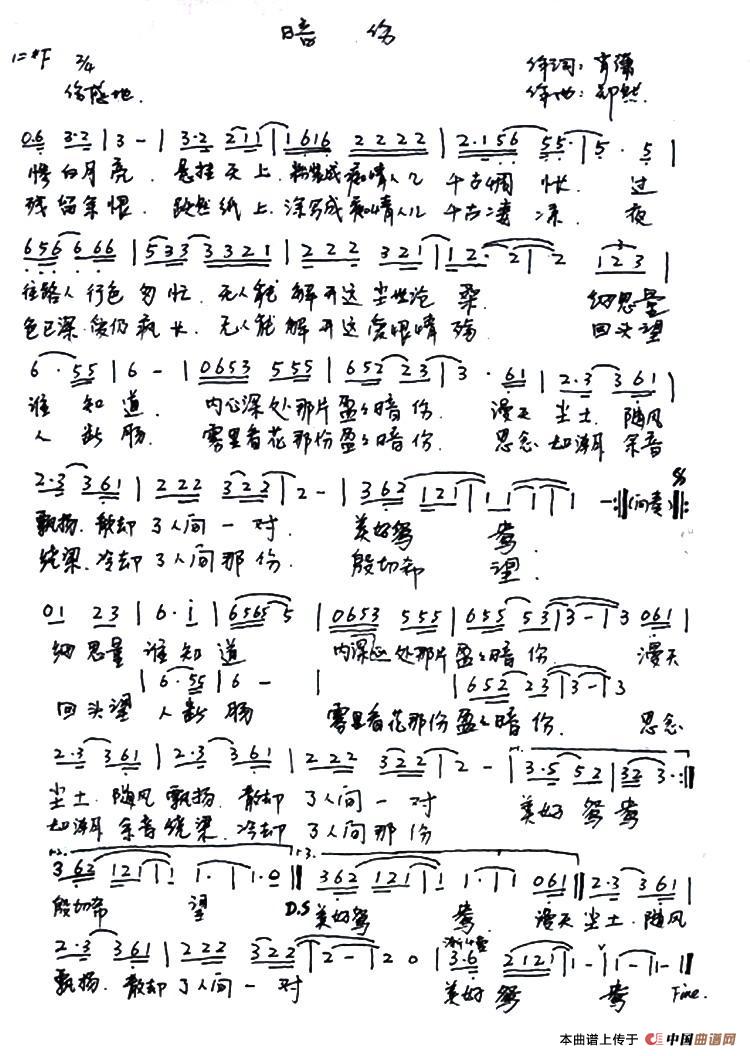 暗 伤
1=#F 2/4
伤感地.
作词:肖潇
作曲:郑然
0.6 3·2 | 3 - | 3·2 211 | 1616 2222 | 2·156 55· | 5 · 5 |
惨白月亮. 悬挂天上. 粉装成痴情人儿 千古惆 怅. 过
残留余恨. 跃然纸上. 深写成痴情人儿 千古凄 凉. 夜
656 666 | 533 3321 | 222 321 | 12· 2 | 2 123 |
往路人行色匆忙. 无人能解开这尘世沧桑. 细思量
色已深 伤仍疯长. 无人能解开这 眼情殇. 回头望
6 · 55 | 6 - | 0653 555 | 652 23 | 3 · 61 | 2·3 361 |
谁知道. 内心深处那片盈盈暗伤. 漫天尘土.随风
人断肠. 雾里看花那份盈盈暗伤. 思念如潮 余音
2·3 361 | 222 323 | 2 - | 362 121 | 1 11 | 1 - :‖(间奏)‖:
飘扬.散却了人间一对 美好鸳 鸯.
绕梁.冷却了人间那份 殷切希 望.
01 23 | 6·i | 6565 5 | 0653 555 | 655 53 | 3 - | 3 061 |
细思量谁知道 内心深处那片盈盈暗伤. 漫天
| 6·55 | 6 - | 652 23 | 3 - | 3
回头望 人断肠 雾里看花那份盈盈暗伤. 思念
2·3 361 | 2·3 361 | 222 322 | 2 - | 3·5 52 | 32 3· :‖
尘土.随风飘扬.散却了人间一对 美好鸳鸯
如潮 余音绕梁.冷却了人间那份
362 121 | 1 1· | 1·0 ‖ 362 121 | 1 1· | 1 061 ‖ 2·3 361 |
殷切希 望 D.S 美好鸳 鸯. 漫天尘土.随风
2·3 361 | 222 322 | 2 - | 2 0 | 3·6 2121 | 1 - | 1 - | 1 - ‖
飘扬.散却了人间一对 美好鸳 鸯 Fine.
本曲谱上传于 中国曲谱网